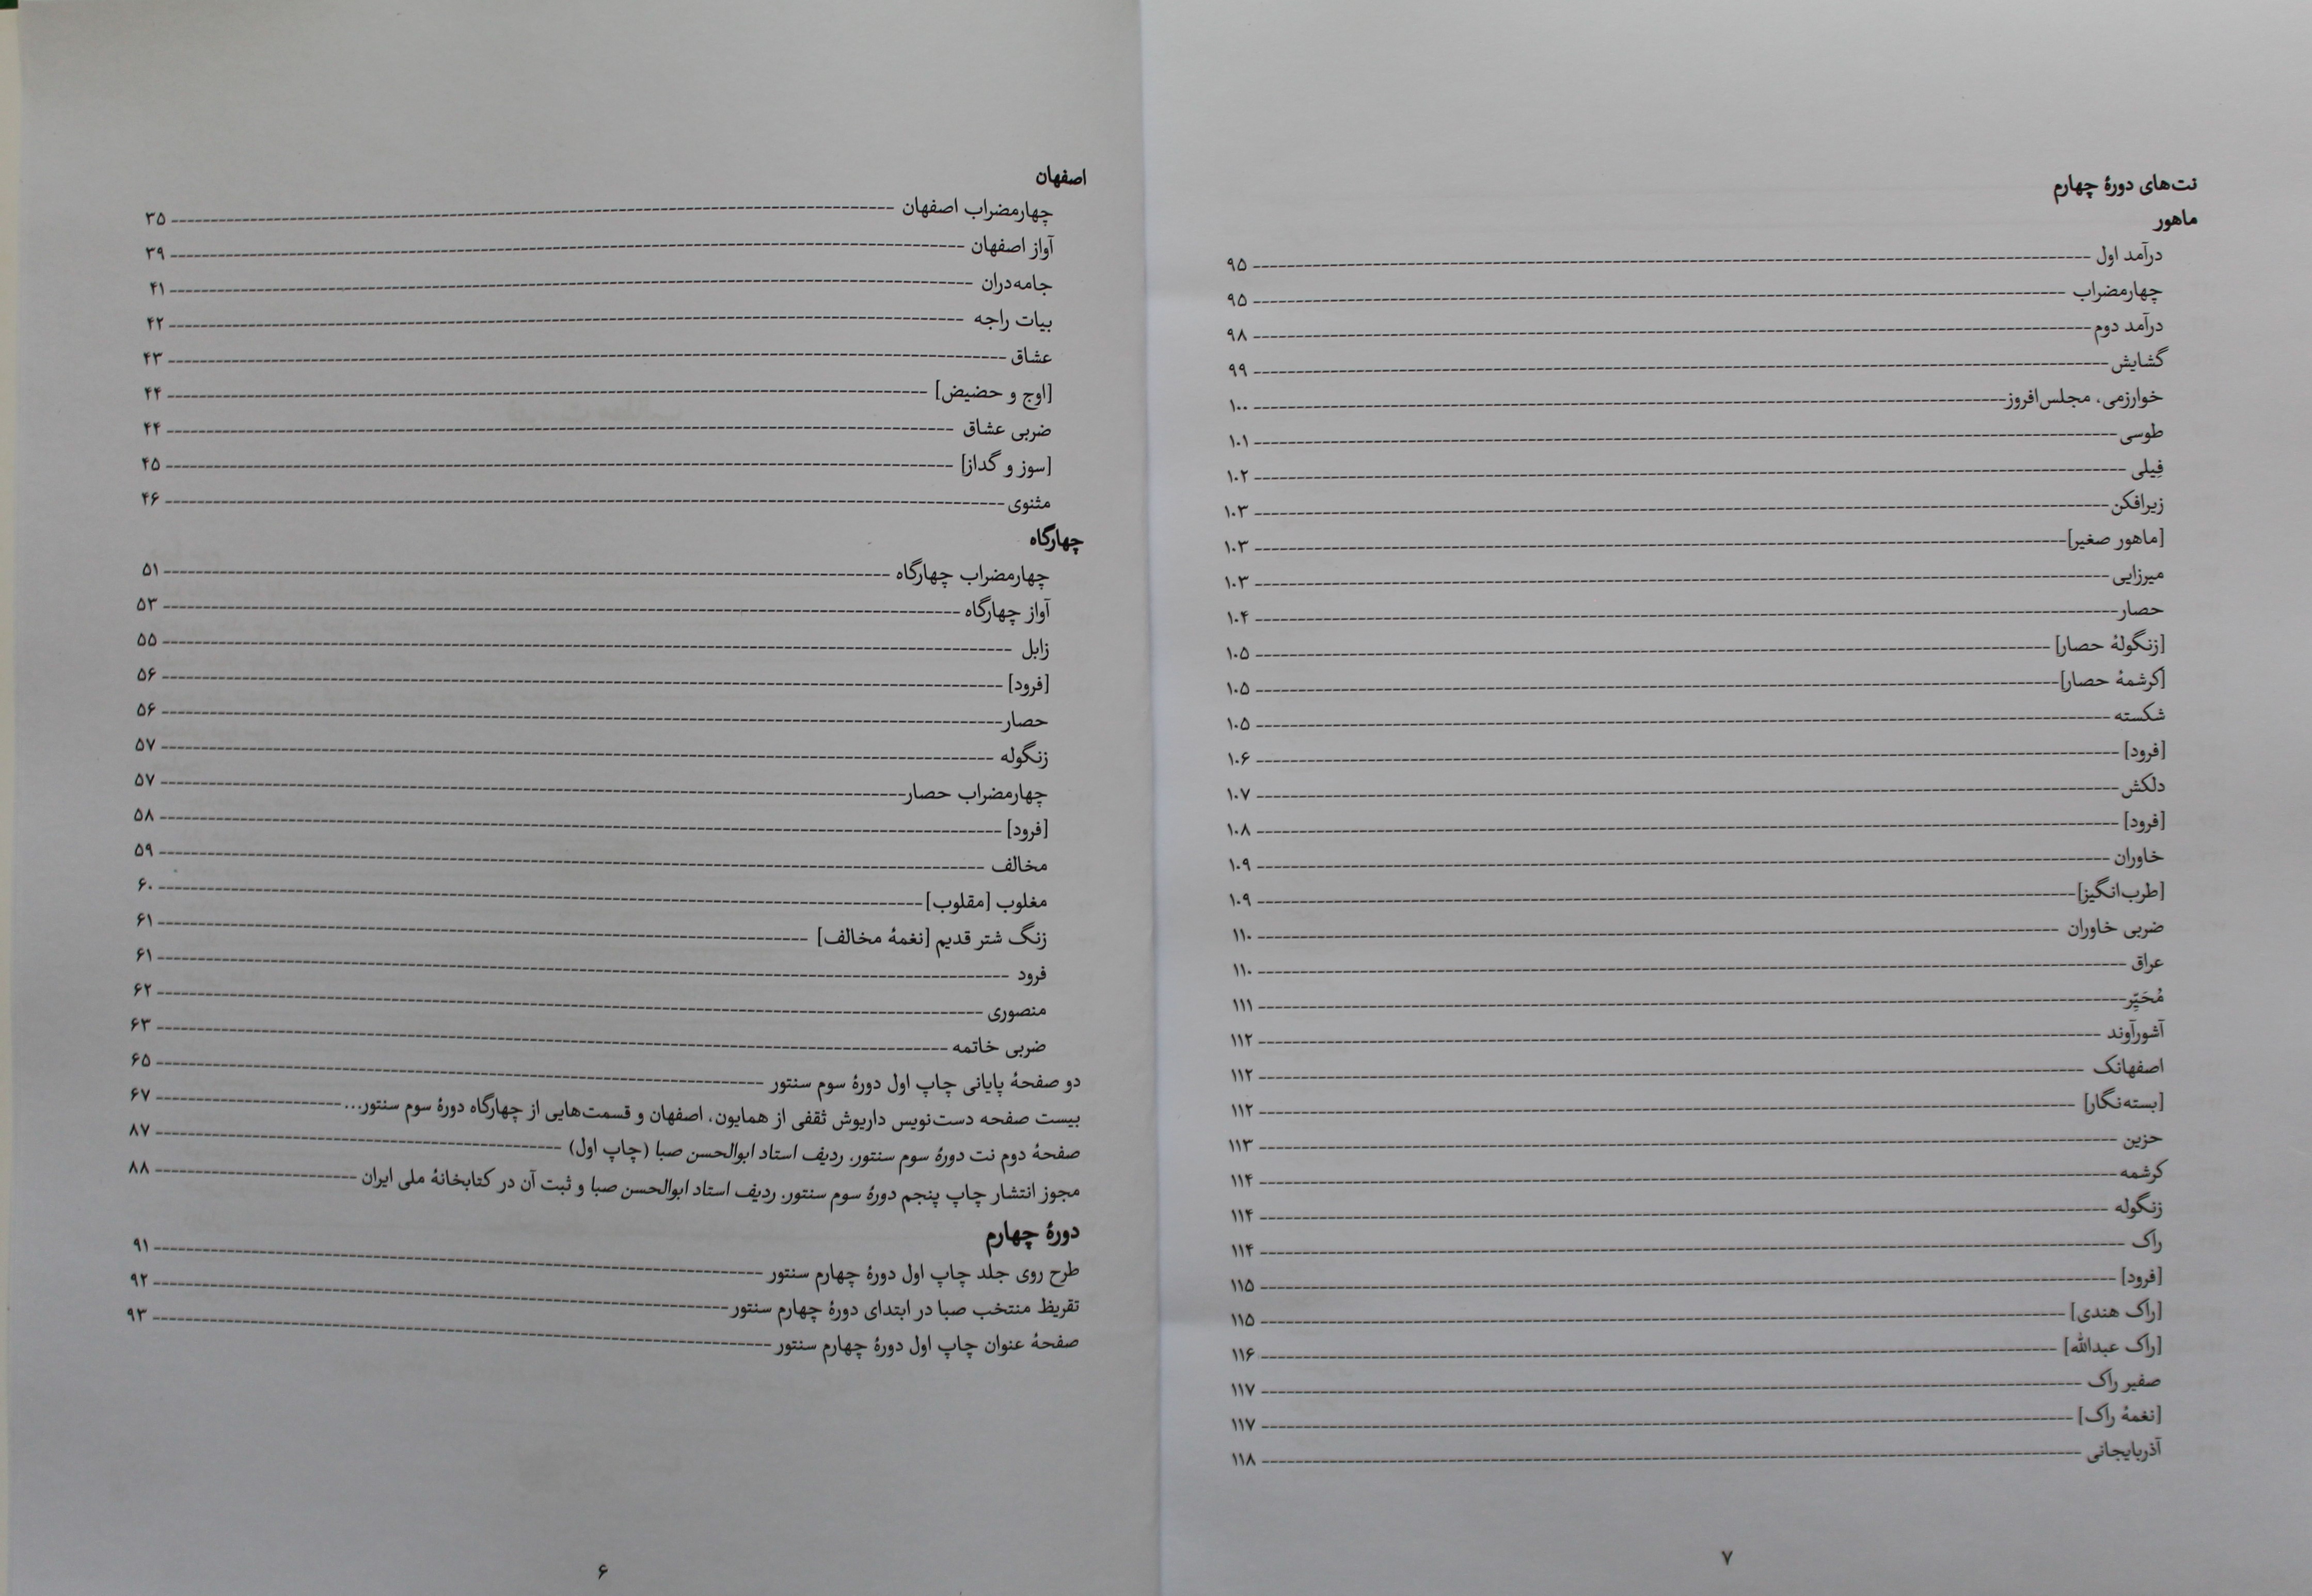 اصفهان
چهارمضراب اصفهان ۳۵
آواز اصفهان ۳۹
جامه‌دران ۴۱
بیات راجه ۴۲
عشاق ۴۳
[اوج و حضیض] ۴۴
ضربی عشاق ۴۴
[سوز و گداز] ۴۵
مثنوی ۴۶
چهارگاه
چهارمضراب چهارگاه ۵۱
آواز چهارگاه ۵۳
زابل ۵۵
[فرود] ۵۶
حصار ۵۶
زنگوله ۵۷
چهارمضراب حصار ۵۷
[فرود] ۵۸
مخالف ۵۹
مغلوب [مقلوب] ۶۰
زنگ شتر قدیم [نغمهٔ مخالف] ۶۱
فرود ۶۱
منصوری ۶۲
ضربی خاتمه ۶۳
دو صفحهٔ پایانی چاپ اول دورهٔ سوم سنتور ۶۵
بیست صفحه دست‌نویس داریوش ثقفی از همایون، اصفهان و قسمت‌هایی از چهارگاه دورهٔ سوم سنتور... ۶۷
صفحهٔ دوم نت دورهٔ سوم سنتور، ردیف استاد ابوالحسن صبا (چاپ اول) ۸۷
مجوز انتشار چاپ پنجم دورهٔ سوم سنتور، ردیف استاد ابوالحسن صبا و ثبت آن در کتابخانهٔ ملی ایران ۸۸
دورهٔ چهارم
طرح روی جلد چاپ اول دورهٔ چهارم سنتور ۹۱
تقریظ منتخب صبا در ابتدای دورهٔ چهارم سنتور ۹۲
صفحهٔ عنوان چاپ اول دورهٔ چهارم سنتور ۹۳
۶
نت‌های دورهٔ چهارم
ماهور
درآمد اول ۹۵
چهارمضراب ۹۵
درآمد دوم ۹۸
گشایش ۹۹
خوارزمی، مجلس‌افروز ۱۰۰
طوسی ۱۰۱
فِیلی ۱۰۲
زیرافکن ۱۰۳
[ماهور صغیر] ۱۰۳
میرزایی ۱۰۳
حصار ۱۰۴
[زنگولهٔ حصار] ۱۰۵
[کرشمهٔ حصار] ۱۰۵
شکسته ۱۰۵
[فرود] ۱۰۶
دلکش ۱۰۷
[فرود] ۱۰۸
خاوران ۱۰۹
[طرب‌انگیز] ۱۰۹
ضربی خاوران ۱۱۰
عراق ۱۱۰
مُحَیِّر ۱۱۱
آشورآوند ۱۱۲
اصفهانک ۱۱۲
[بسته‌نگار] ۱۱۲
حزین ۱۱۳
کرشمه ۱۱۴
زنگوله ۱۱۴
راک ۱۱۴
[فرود] ۱۱۵
[راک هندی] ۱۱۵
[راک عبدالله] ۱۱۶
صفیر راک ۱۱۷
[نغمهٔ راک] ۱۱۷
آذربایجانی ۱۱۸
۷